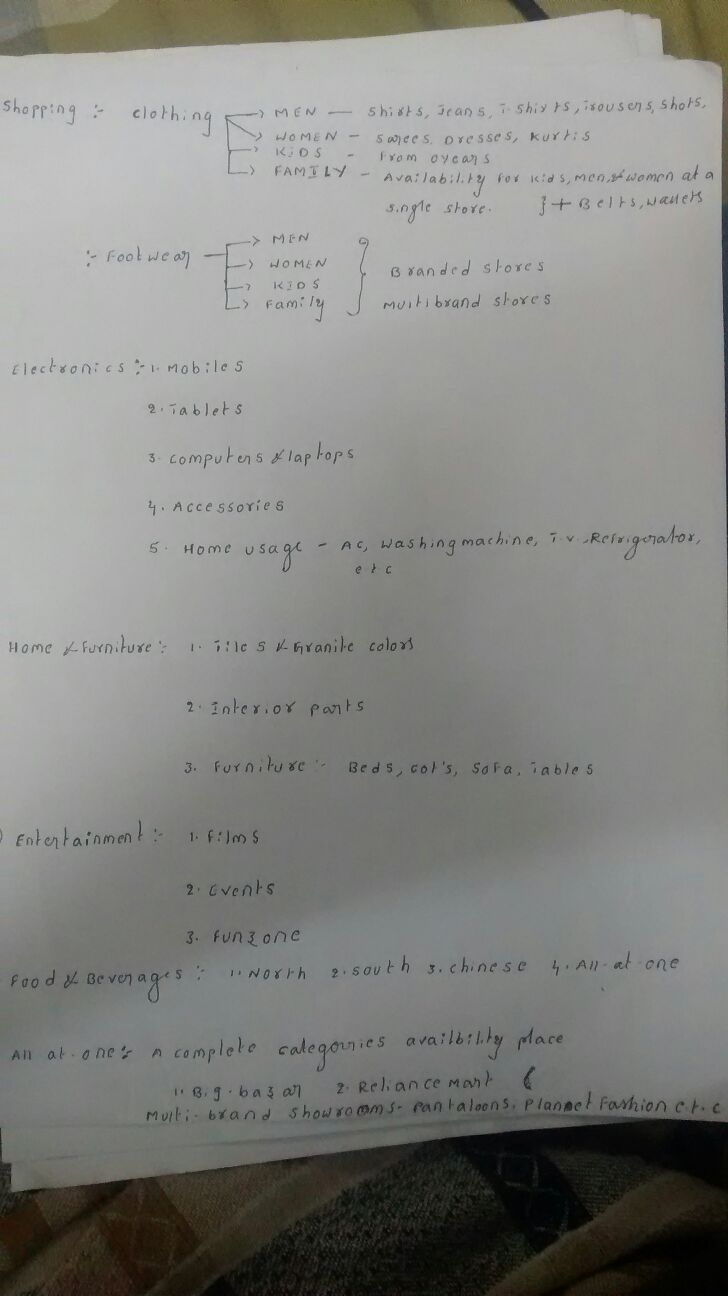 Shopping :- Clothing → MEN — Shirts, Jeans, T-Shirts, Trousers, Shots,
→ WOMEN - Sarees, Dresses, Kurtis
→ KIDS - From 0years
→ FAMILY - Availability for Kids, Men, & women at a
single store. } + Belts, wallets
:- Footwear → MEN
→ WOMEN
→ KIDS
→ Family
} Branded stores
Multibrand stores
Electronics :- 1. Mobiles
2. Tablets
3. Computers & laptops
4. Accessories
5. Home usage - AC, Washing machine, T.V., Refrigerator,
etc
Home & Furniture :- 1. Tiles & Granite colors
2. Interior parts
3. Furniture :- Beds, cot's, Sofa, Tables
Entertainment :- 1. Films
2. Events
3. Funzone
Food & Beverages :- 1. North 2. South 3. Chinese 4. All-at-one
All at-one :- A complete categouries availbility place
1. Big-bazar 2. Reliance Mart (
Multi-brand showrooms- Pantaloons, Plannet Fashion e.t.c